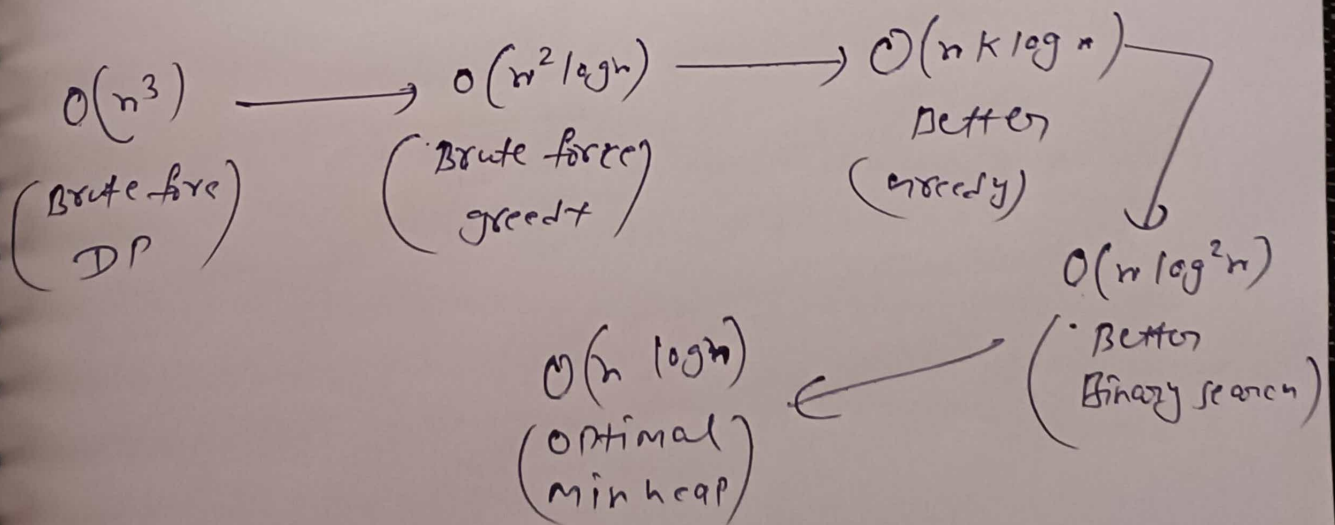 O(n³) → O(n² log n) → O(n k log n)
(Brute fore
DP)
(Brute force
greedt)
Better
(Greedy)
O(n log² n)
(Better
Binary search)
O(n log n)
(Optimal
min heap)